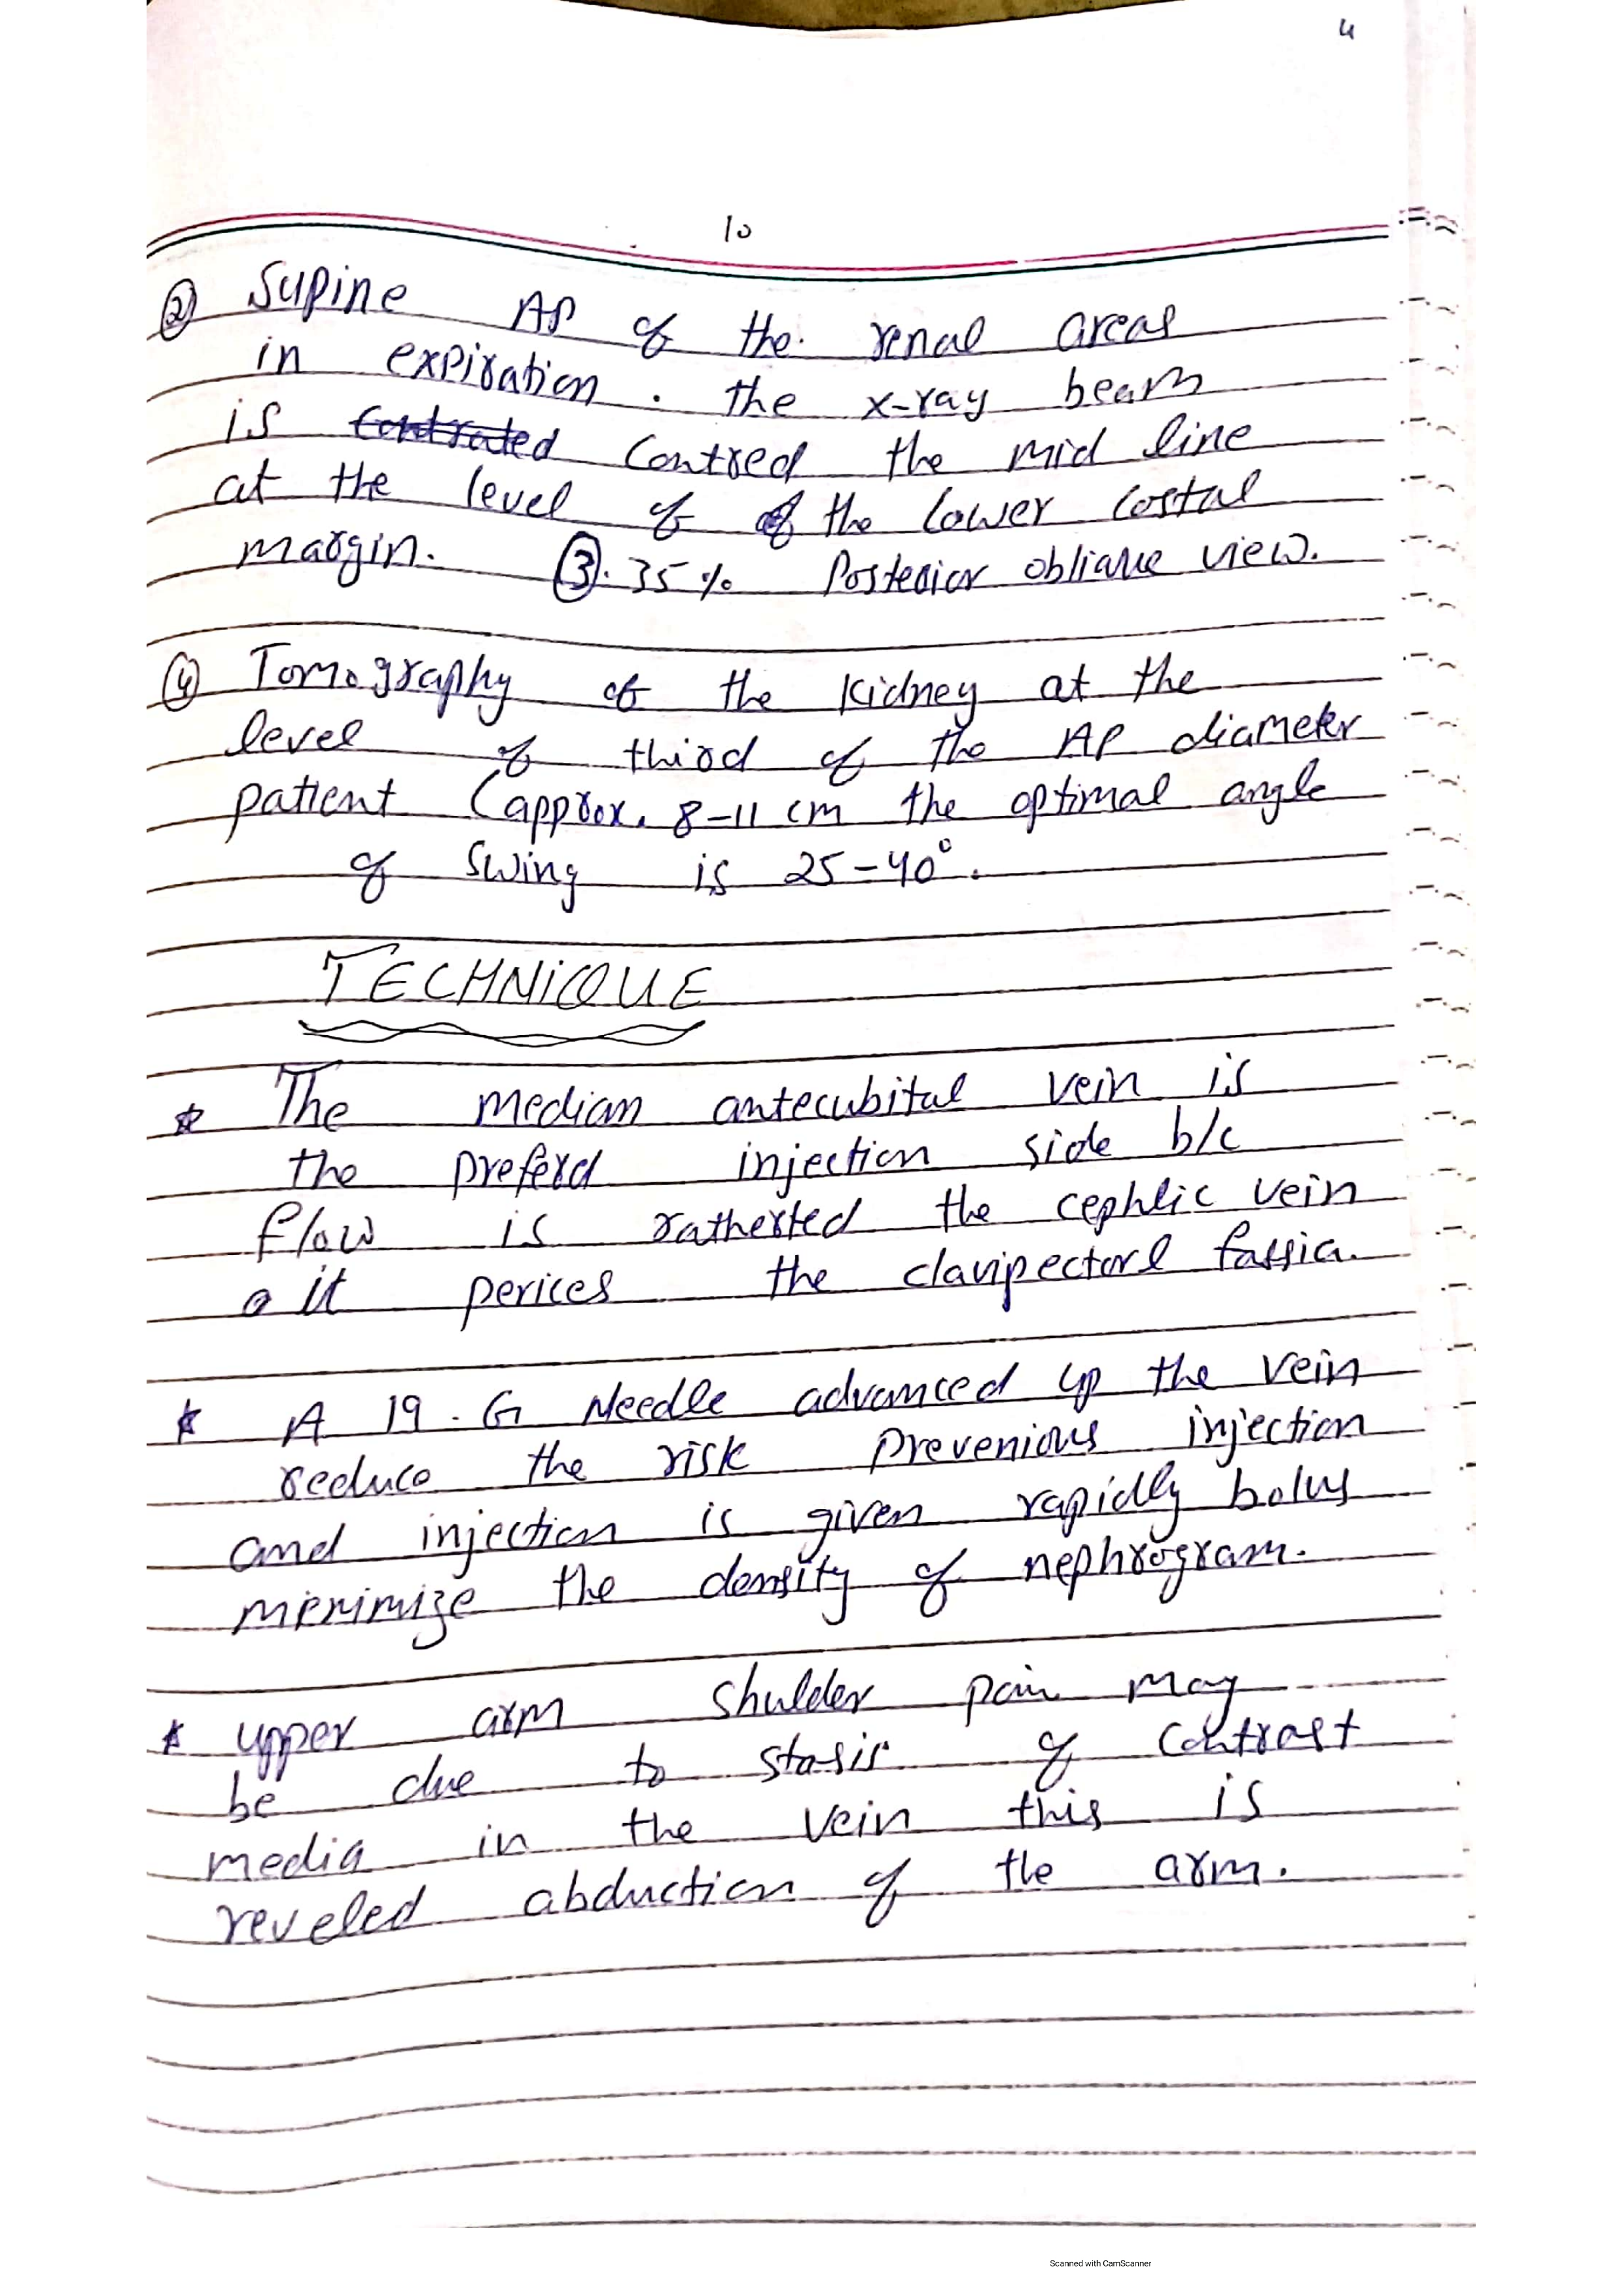 4
10
② Supine AP of the renal areas
in expiration. the x-ray beam
is Contrated Contred the mid line
at the level of of the lower costal
margin. ③. 35% Posterior obliaue view.
④ Tomography of the kidney at the
level of third of the AP diameter
patient (approx. 8-11 cm the optimal angle
of swing is 25-40°.
TECHNIQUE
* The median antecubital vein is
the preferd injection side b/c
flow is ratherted the cephlic vein
o it perices the clavipectorl fassia.
* A 19.G Needle advanced up the vein
reduce the risk prevenious injection
and injection is given rapidly bolus
menimize the density of nephrogram.
* upper arm shulder pain may
be due to stasis of contrast
media in the vein this is
reveled abduction of the arm.
Scanned with CamScanner